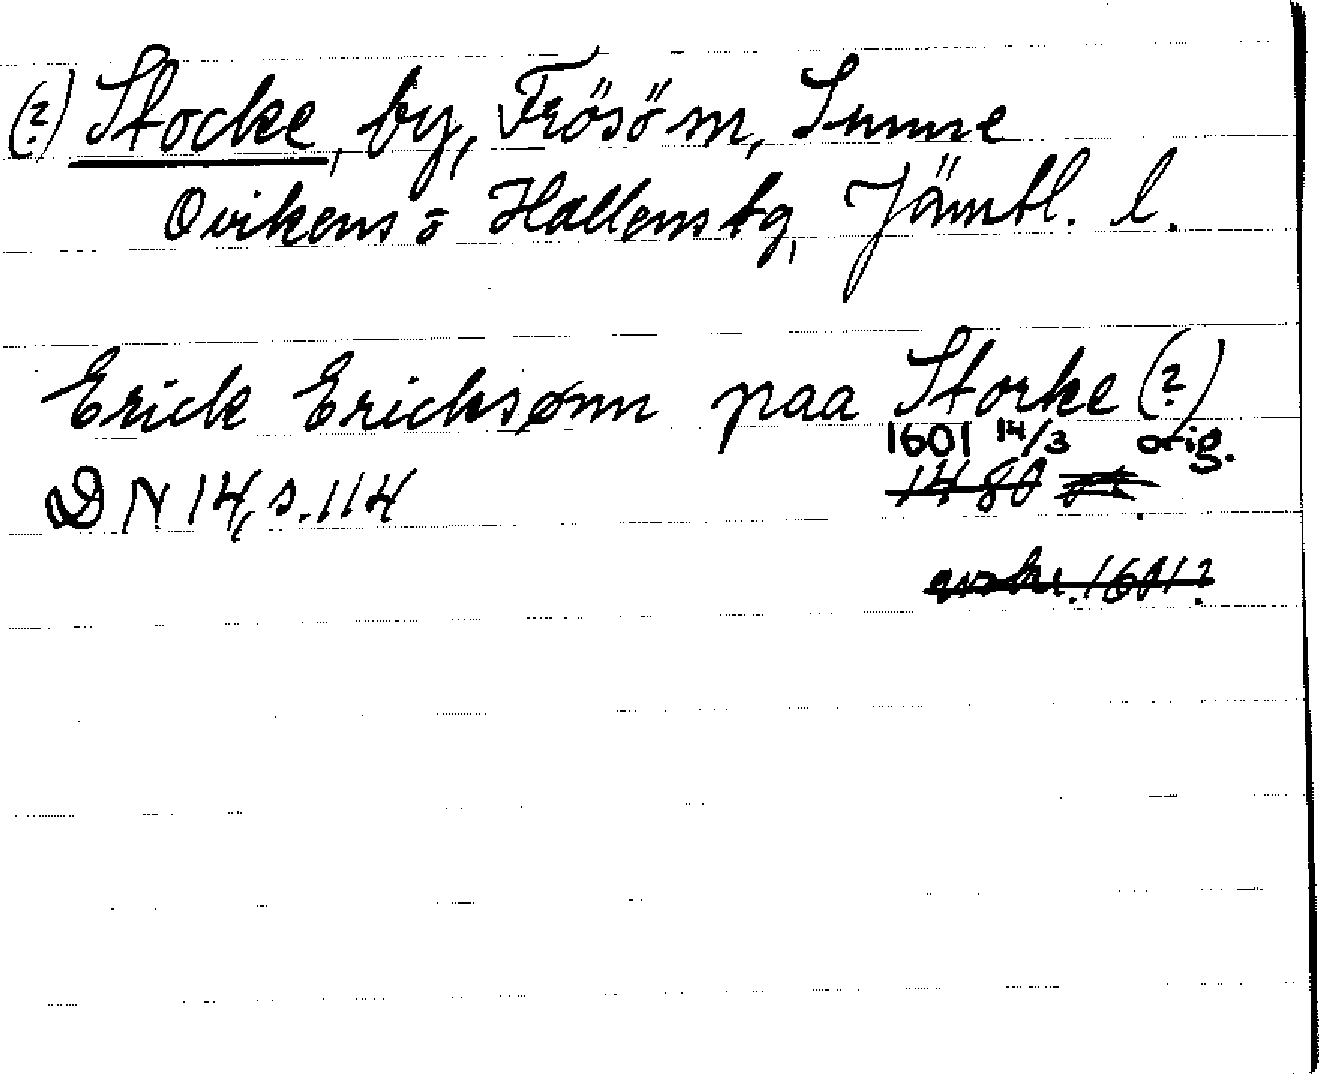 (?) Stocke, by, Frösö m, Sunne
Ovikens o Hallens tg, Jämtl. l.
Erick Ericksønn paa Storke (?)
1601 14/3 orig.
DN 14, s. 114 1480
avskr. 1601?